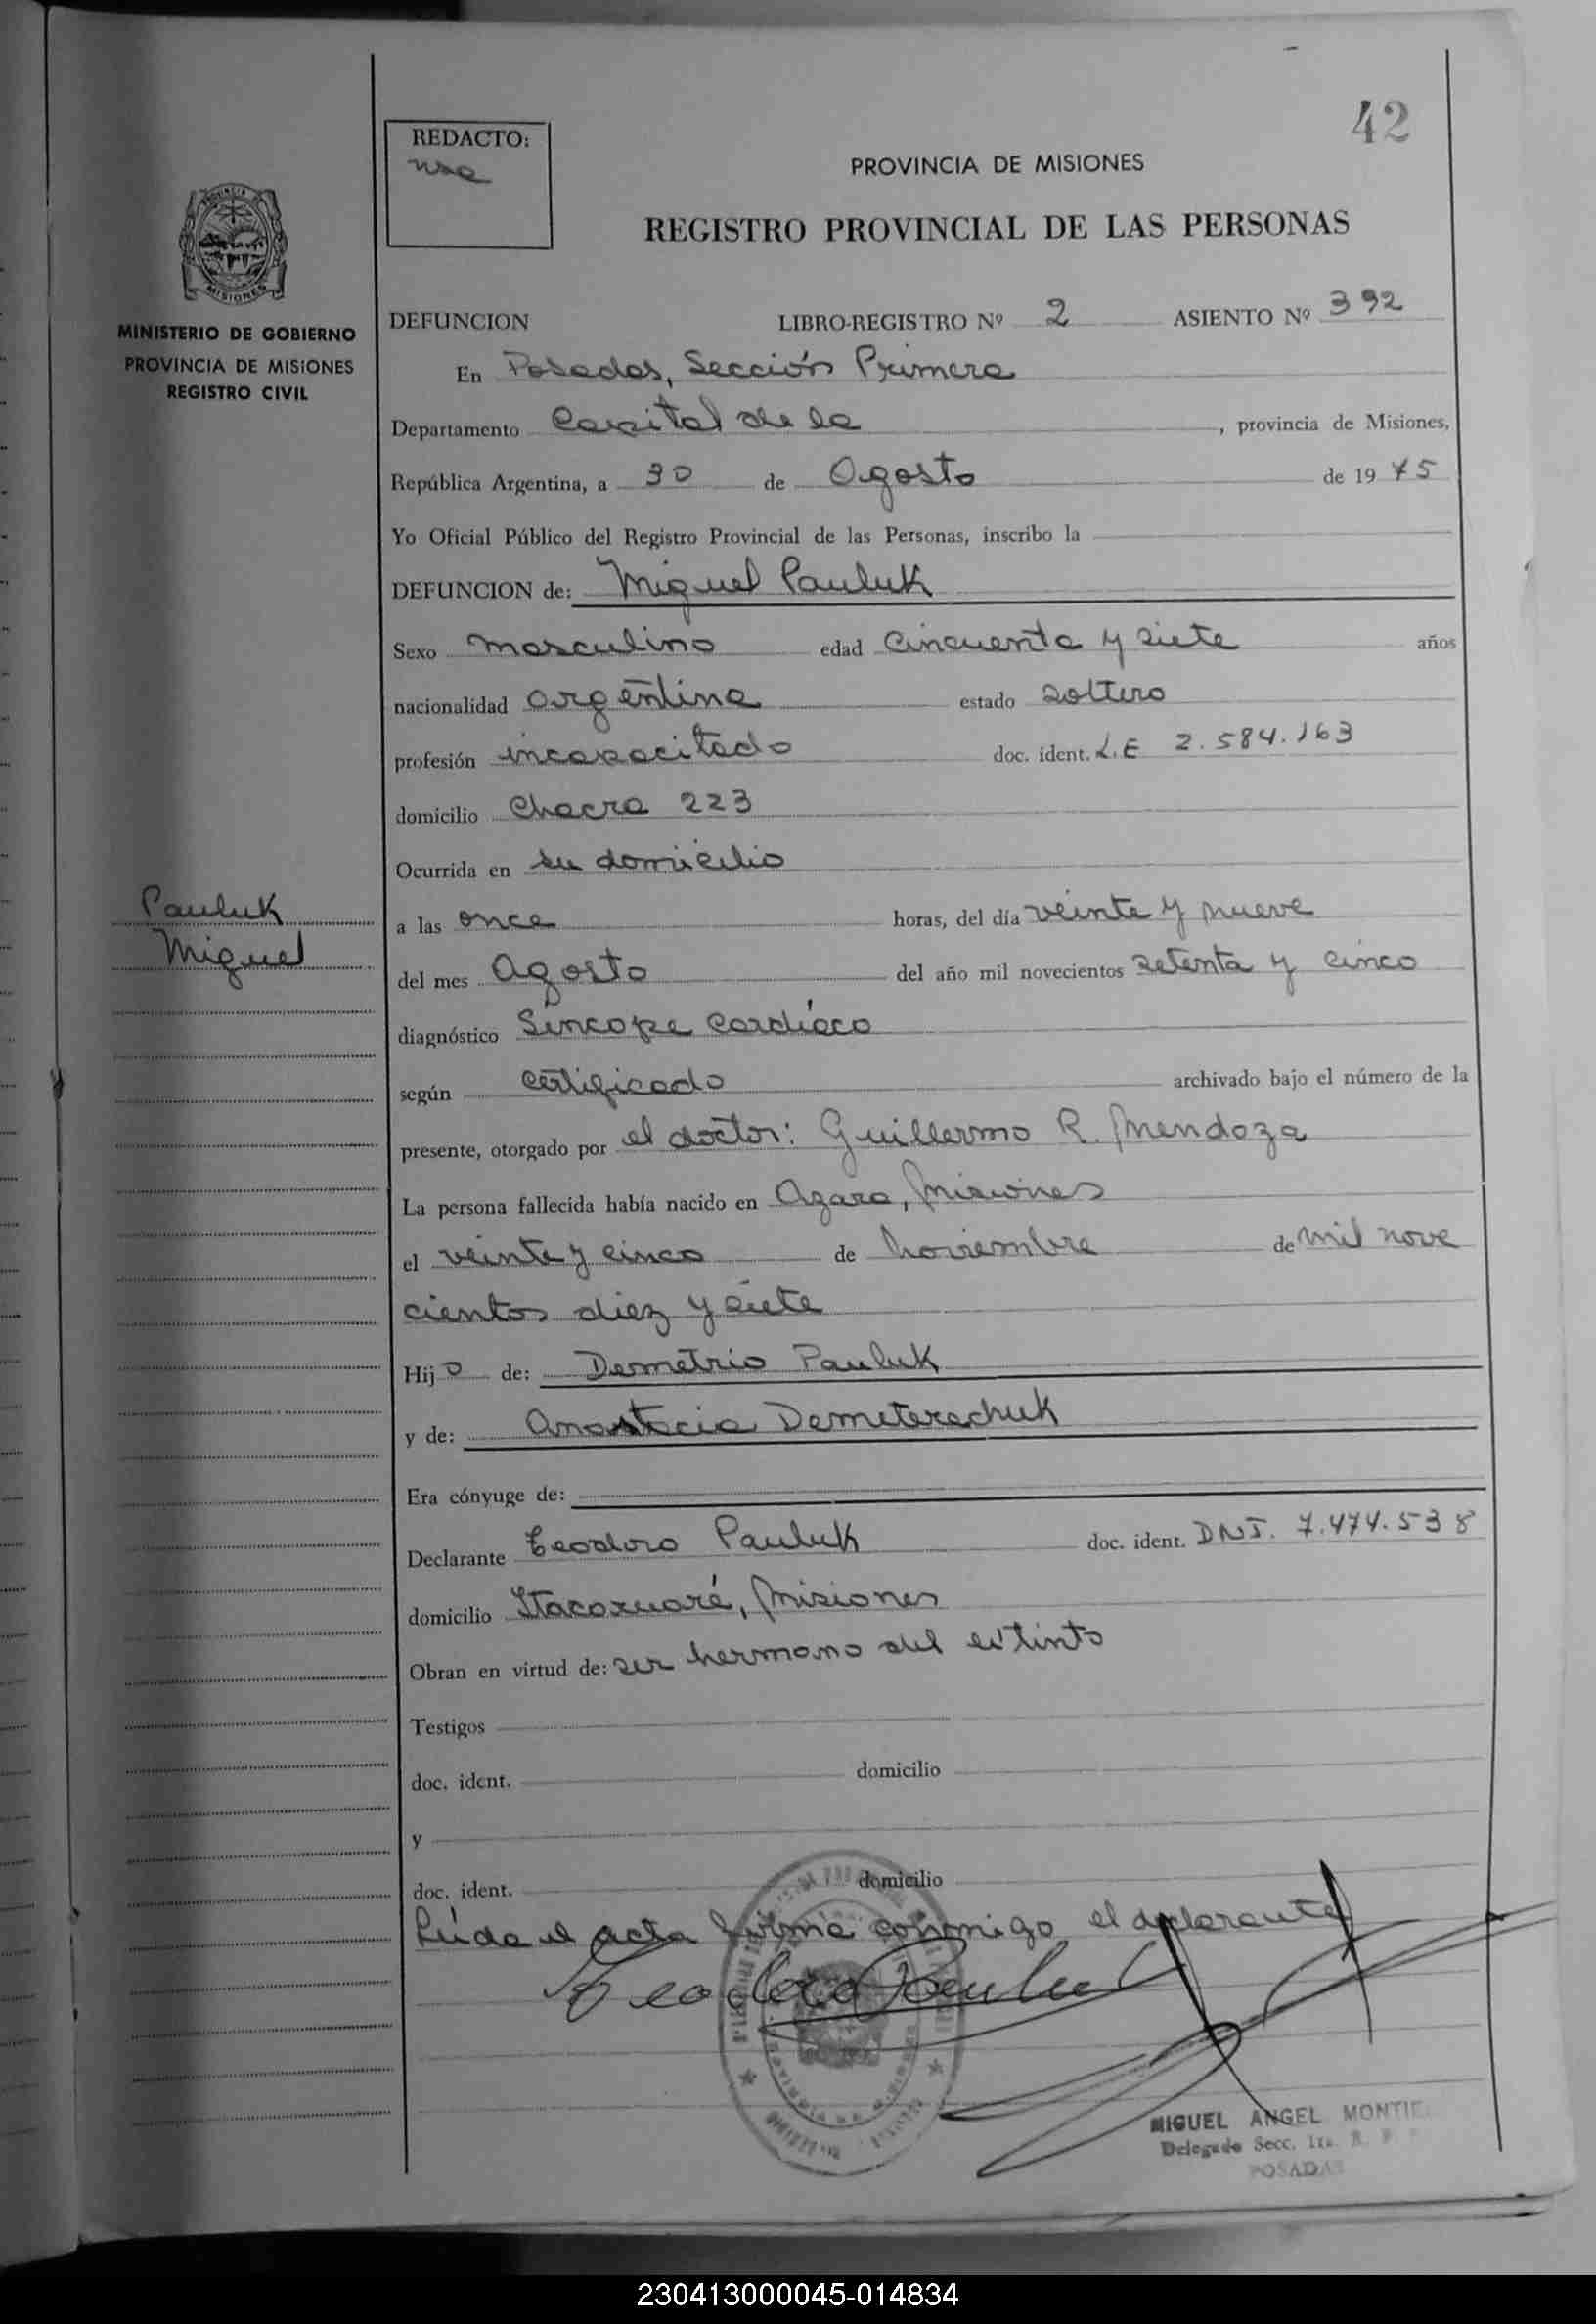 42
REDACTO:
PROVINCIA DE MISIONES
REGISTRO PROVINCIAL DE LAS PERSONAS
PROVINCIA DE
MISIONES
MINISTERIO DE GOBIERNO
PROVINCIA DE MISIONES
REGISTRO CIVIL
DEFUNCION LIBRO-REGISTRO Nº 2 ASIENTO Nº 392
En Posadas, Sección Primera
Departamento Capital de la , provincia de Misiones,
República Argentina, a 30 de Agosto de 1975
Yo Oficial Público del Registro Provincial de las Personas, inscribo la
DEFUNCION de: Miguel Pauluk
Sexo masculino edad cincuenta y siete años
nacionalidad argentina estado soltero
profesión incapacitado doc. ident. L.E 2.584.163
domicilio Chacra 223
Ocurrida en su domicilio
Pauluk
Miguel
a las once horas, del día veinte y nueve
del mes Agosto del año mil novecientos setenta y cinco
diagnóstico Síncope cardíaco
según certificado archivado bajo el número de la
presente, otorgado por el doctor: Guillermo R. Mendoza
La persona fallecida había nacido en Azara, Misiones
el veinte y cinco de noviembre de mil nove
cientos diez y siete
Hijo de: Demetrio Pauluk
y de: Anastacia Demeterechuk
Era cónyuge de:
Declarante Teodoro Pauluk doc. ident. DNI. 7.474.538
domicilio Itacaruaré, Misiones
Obran en virtud de: ser hermano del extinto
Testigos
doc. ident. domicilio
y
doc. ident. domicilio
Leída el acta firma conmigo el declarante
Teodoro Pauluk
MIGUEL ANGEL MONTIE
Delegado Secc. 1ra. R. P.
POSADAS
230413000045-014834